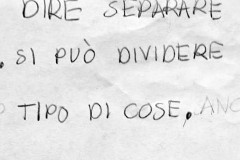 DIRE SEPARARE
. SI PUÒ DIVIDERE
TIPO DI COSE, ANC